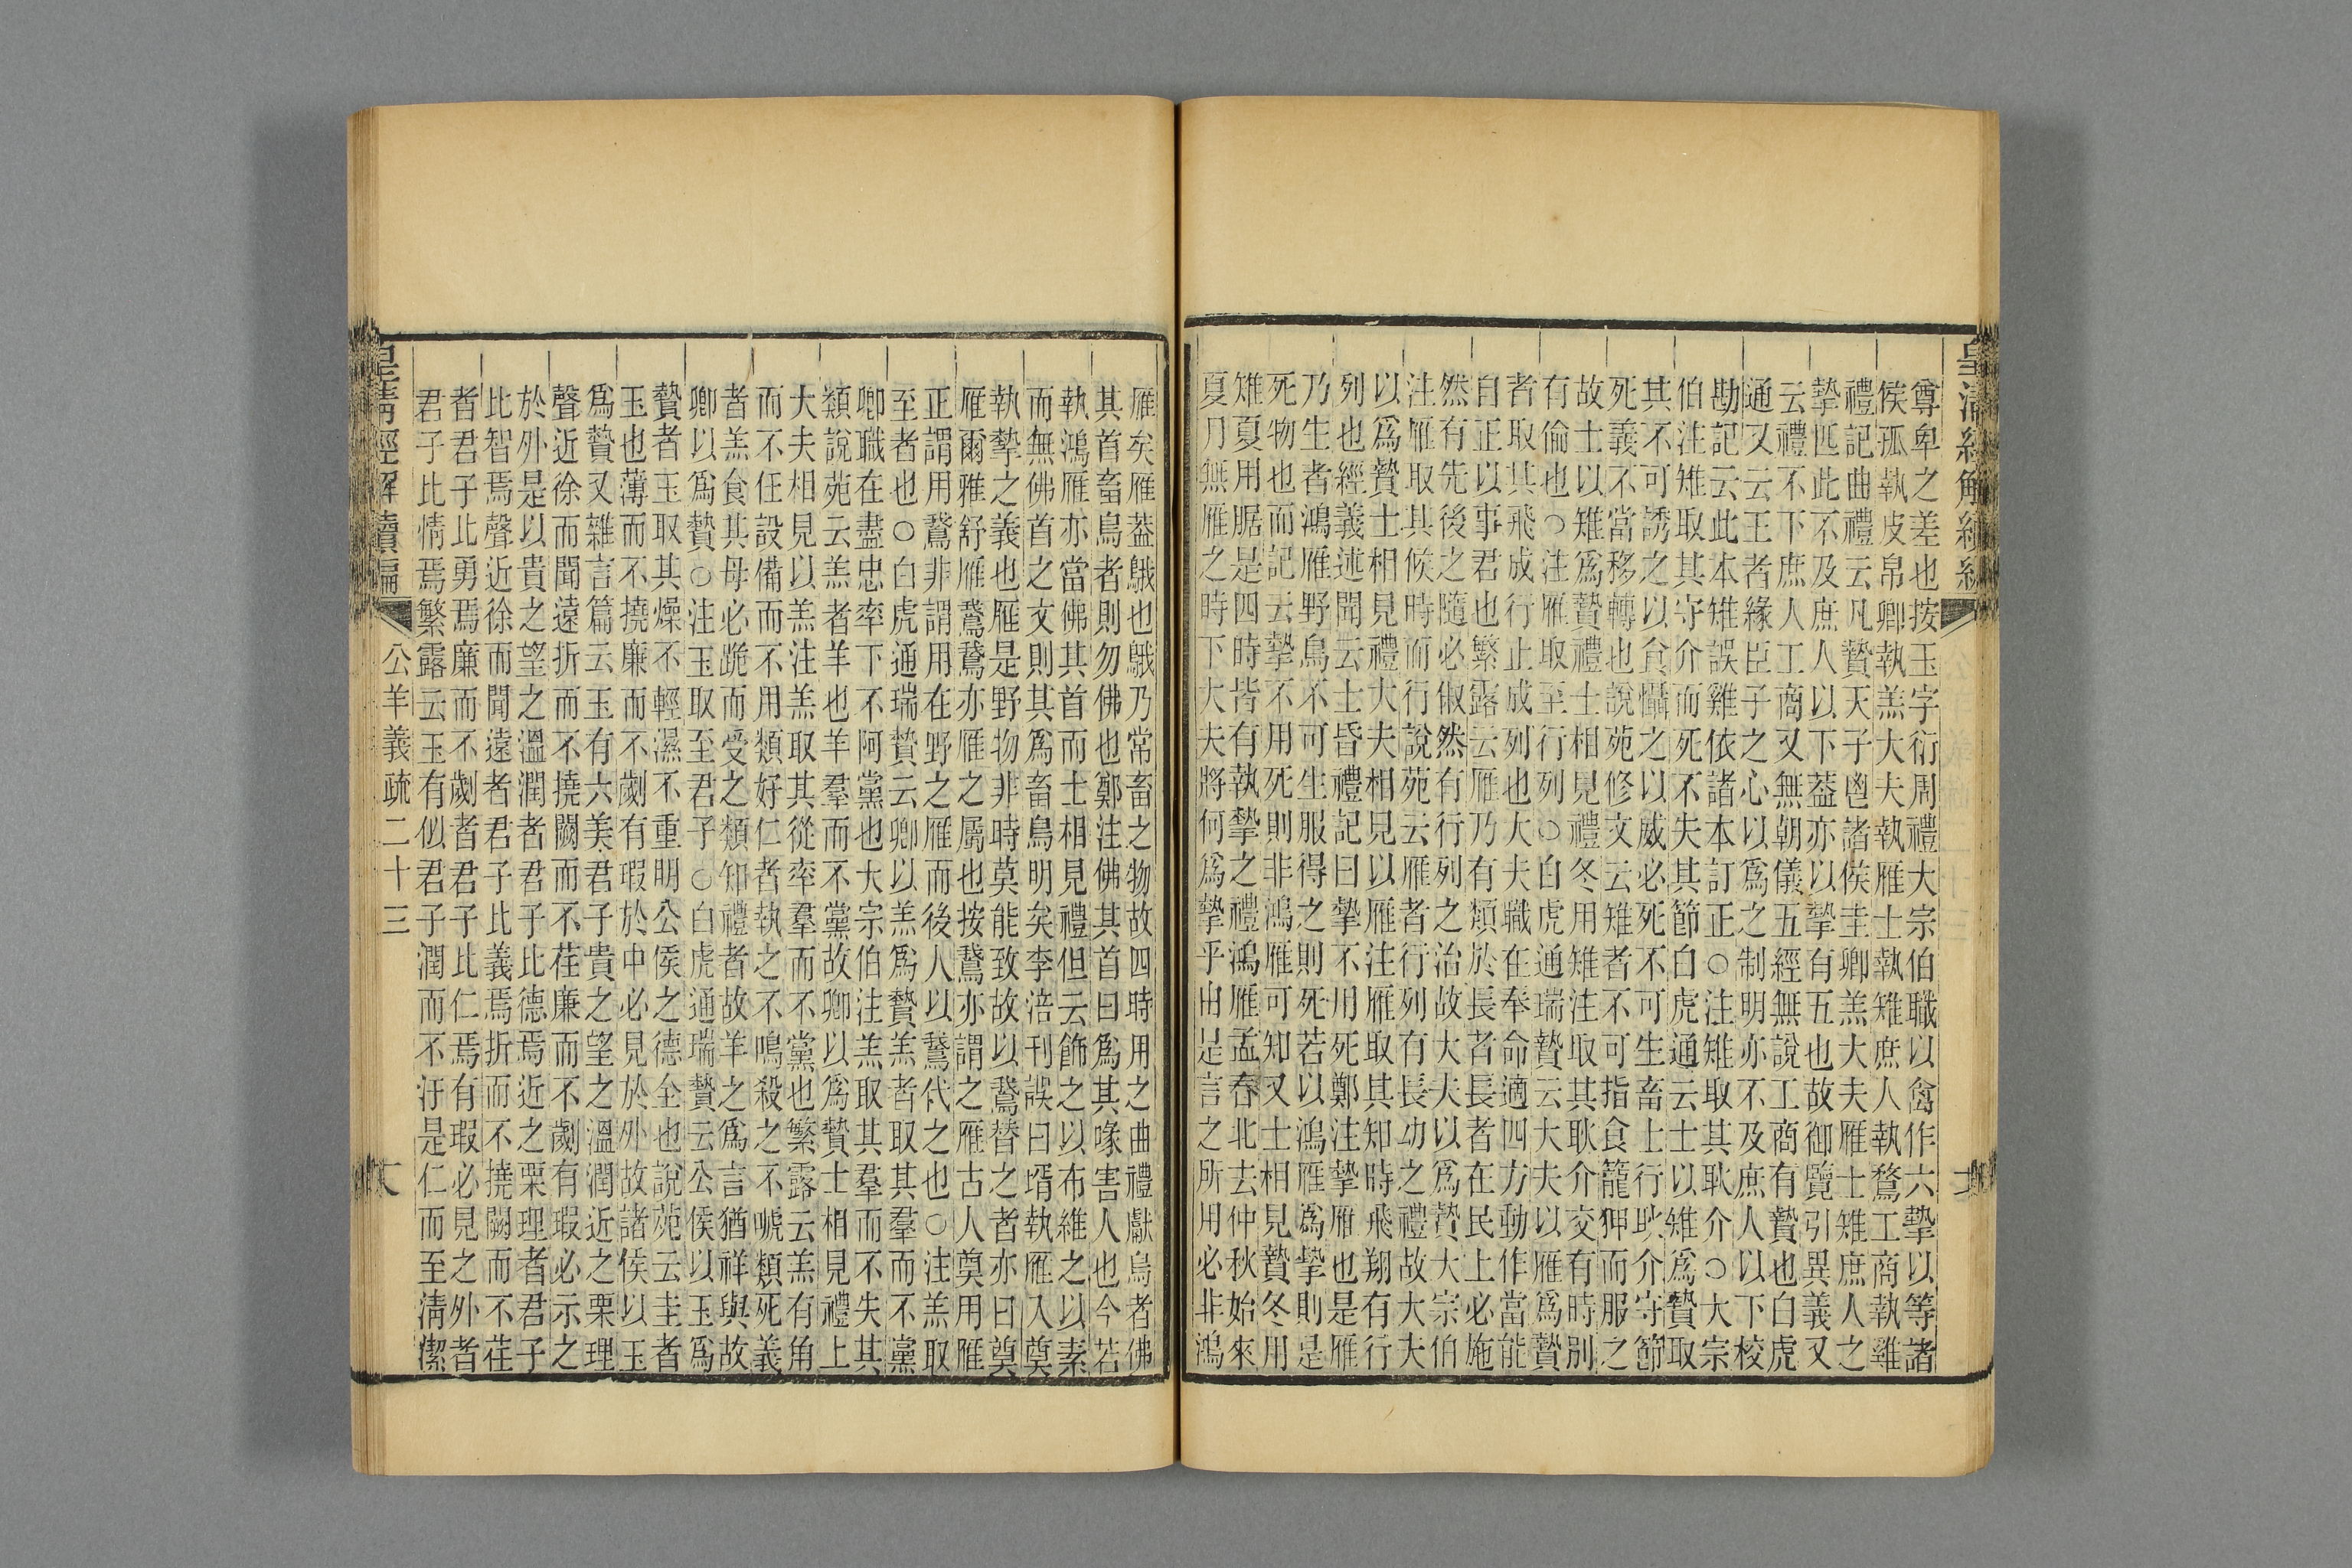 皇清經解續編
尊卑之差也按玉字衍周禮大宗伯職以禽作六摯以等諸
侯孤執皮帛卿執羔大夫執雁士執雉庶人執鶩工商執雞
禮記曲禮云凡贄天子鬯諸侯圭卿羔大夫雁士雉庶人之
摯匹此不及庶人以下蓋亦以摯有五也故御覽引異義又
云禮不下庶人工商又無朝儀五經無說工商有贄也白虎
通又云王者緣臣子之心以爲之制明亦不及庶人以下校
勘記云此本雉誤雞依諸本訂正○注雉取其耿介○大宗
伯注雉取其守介而死不失其節白虎通云士以雉爲贄取
其不可誘之以食懾之以威必死不可生畜士行耿介守節
死義不當移轉也說苑修文云雉者不可指食籠狎而服之
故士以雉爲贄禮士相見禮冬用雉注取其耿介交有時別
有倫也○注雁取至行列○白虎通瑞贄云大夫以雁爲贄
者取其飛成行止成列也大夫職在奉命適四方動作當能
自正以事君也繁露云雁乃有類於長者長者在民上必施
然有先後之隨必俶然有行列之治故大夫以爲贄大宗伯
注雁取其候時而行說苑云雁者行列有長功之禮故大夫
以爲贄士相見禮大夫相見以雁注雁取其知時飛翔有行
列也經義述聞云士昏禮記曰摯不用死鄭注摯雁也是雁
乃生者鴻雁野鳥不可生服得之則死若以鴻雁爲摯則是
死物也而記云摯不用死則非鴻雁可知又士相見贄冬用
雉夏用腒是四時皆有執摯之禮鴻雁孟春北去仲秋始來
夏月無雁之時下大夫將何爲摯乎由是言之所用必非鴻
雁矣雁蓋䳘也䳘乃常畜之物故四時用之曲禮獻鳥者佛
其首畜鳥者則勿佛也鄭注佛其首曰爲其喙害人也今若
執鴻雁亦當佛其首而士相見禮但云飾之以布維之以素
而無佛首之文則其爲畜鳥明矣李涪刊誤曰壻執雁入奠
執摯之義也雁是野物非時莫能致故以鵞替之者亦曰奠
雁爾雅舒雁鵞鵞亦雁之屬也按鵞亦謂之雁古人奠用雁
正謂用鵞非謂用在野之雁而後人以鵞代之也○注羔取
至者也○白虎通瑞贄云卿以羔爲贄羔者取其羣而不黨
卿職在盡忠率下不阿黨也大宗伯注羔取其羣而不失其
類說苑云羔者羊也羊羣而不黨故卿以爲贄士相見禮上
大夫相見以羔注羔取其從率羣而不黨也繁露云羔有角
而不任設備而不用類好仁者執之不鳴殺之不嗁類死義
者羔食其母必跪而受之類知禮者故羊之爲言猶祥與故
卿以爲贄○注玉取至君子○白虎通瑞贄云公侯以玉爲
贄者玉取其燥不輕濕不重明公侯之德全也說苑云圭者
玉也薄而不撓廉而不劌有瑕於中必見於外故諸侯以玉
爲贄又雜言篇云玉有六美君子貴之望之溫潤近之栗理
聲近徐而聞遠折而不撓闕而不荏廉而不劌有瑕必示之
於外是以貴之望之溫潤者君子比德焉近之栗理者君子
比智焉聲近徐而聞遠者君子比義焉折而不撓闕而不荏
者君子比勇焉廉而不劌者君子比仁焉有瑕必見之外者
君子比情焉繁露云玉有似君子潤而不汙是仁而至淸潔
皇清經解續編 公羊義疏二十三